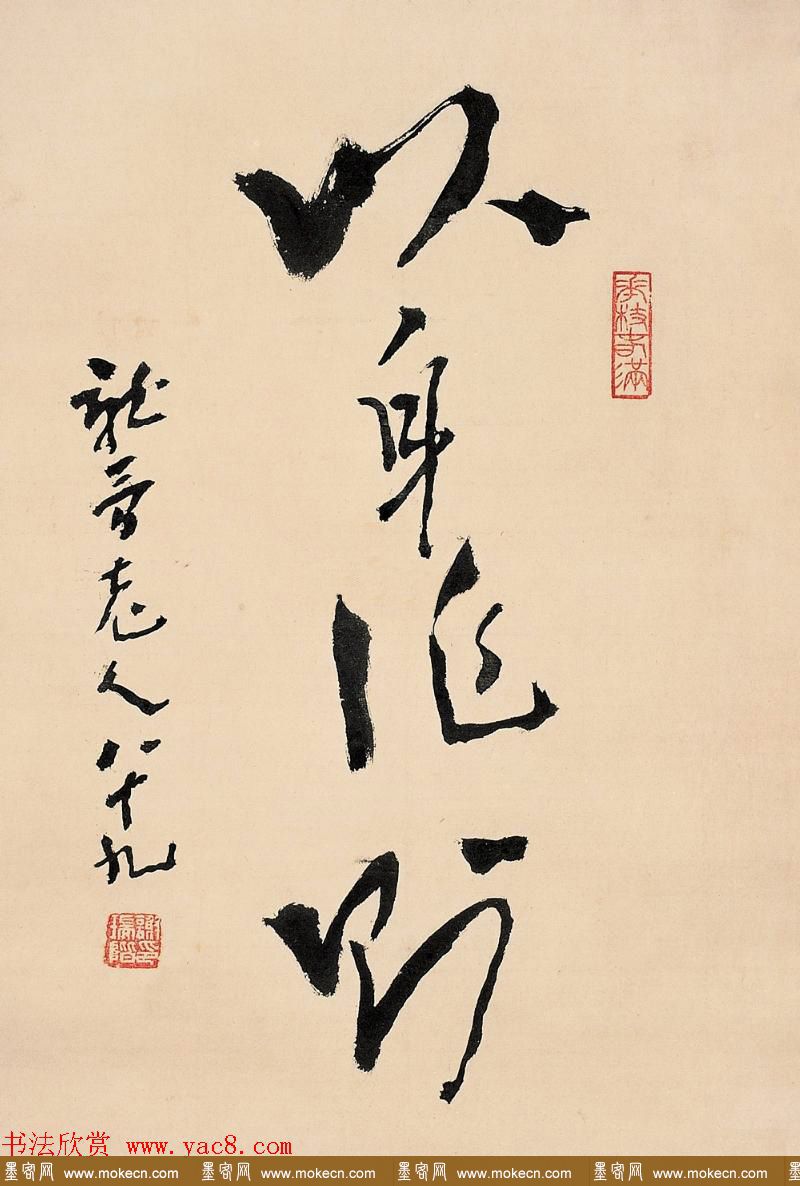 以身作则
就简老人八十九
謝瑞階印
书法欣赏 www.yac8.com
墨客网 www.mokecn.com 墨客网 www.mokecn.com 墨客网 www.mokecn.com 墨客网 www.mokecn.com